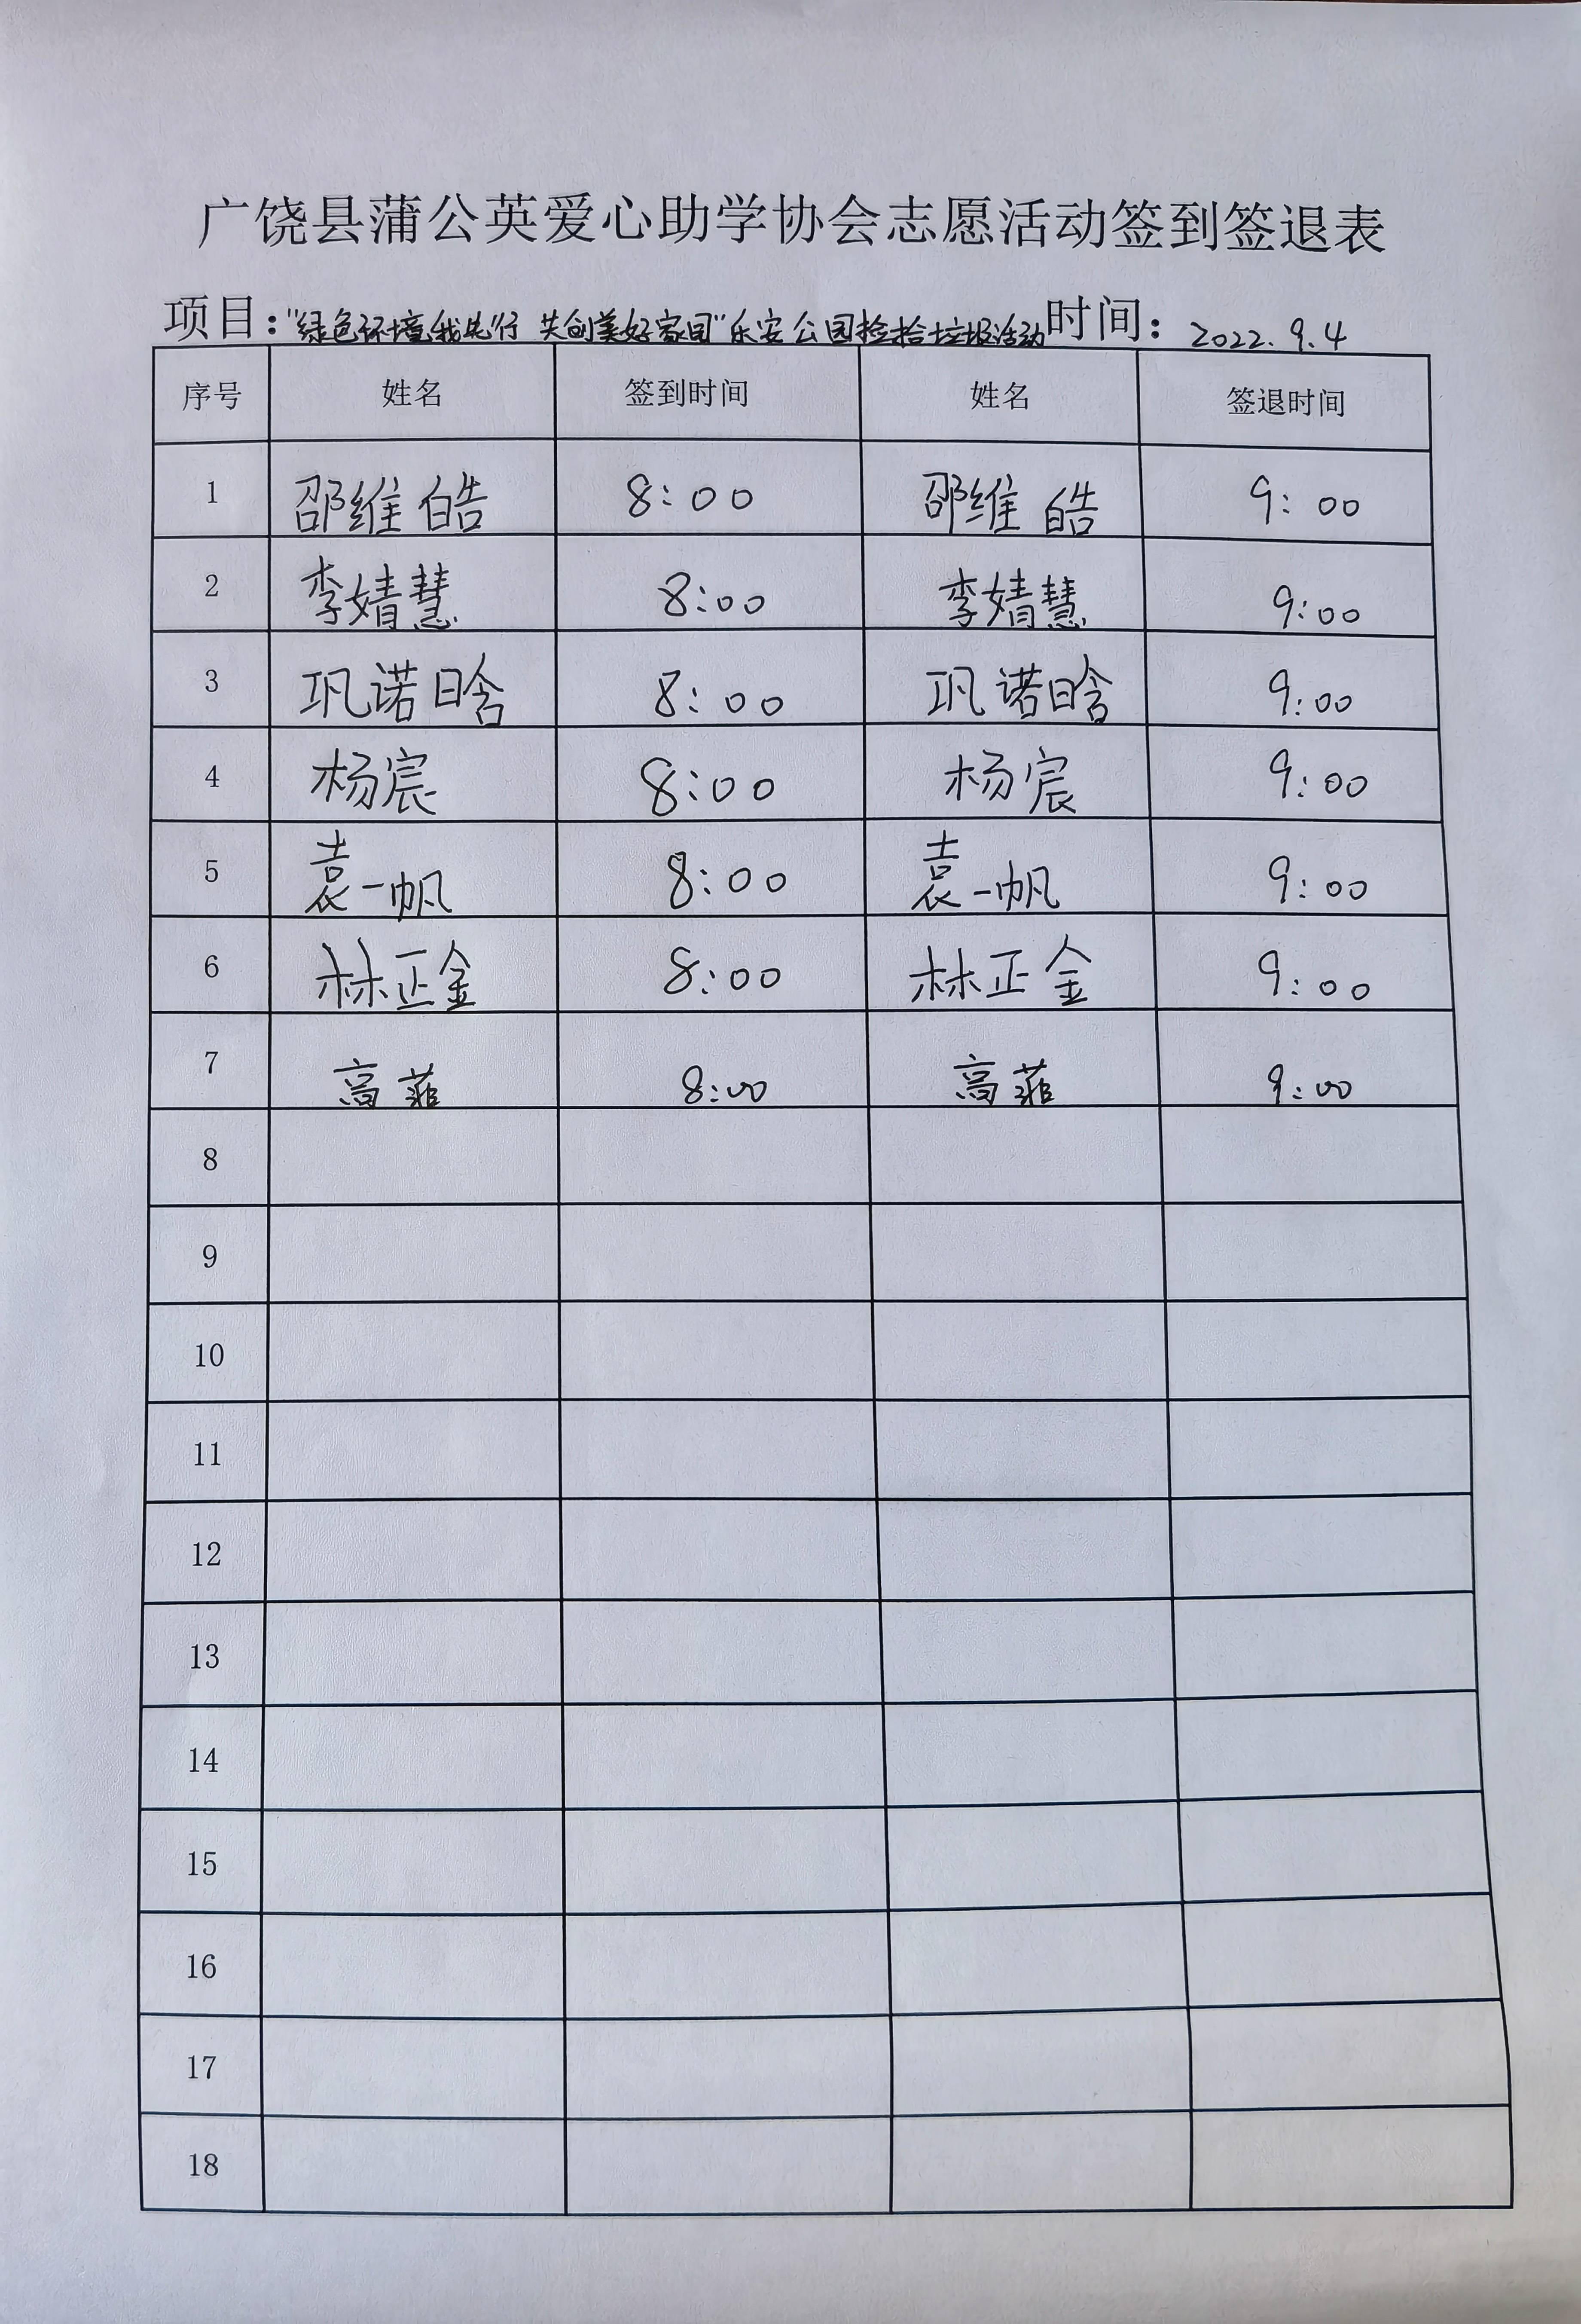 广饶县蒲公英爱心助学协会志愿活动签到签退表
项目："绿色环境我先行 共创美好家园"乐安公园捡拾垃圾活动 时间：2022.9.4
序号 姓名 签到时间 姓名 签退时间
1 邵维皓 8:00 邵维皓 9:00
2 李婧慧 8:00 李婧慧 9:00
3 巩诺晗 8:00 巩诺晗 9:00
4 杨宸 8:00 杨宸 9:00
5 袁一帆 8:00 袁一帆 9:00
6 林正金 8:00 林正金 9:00
7 高菲 8:00 高菲 9:00
8
9
10
11
12
13
14
15
16
17
18